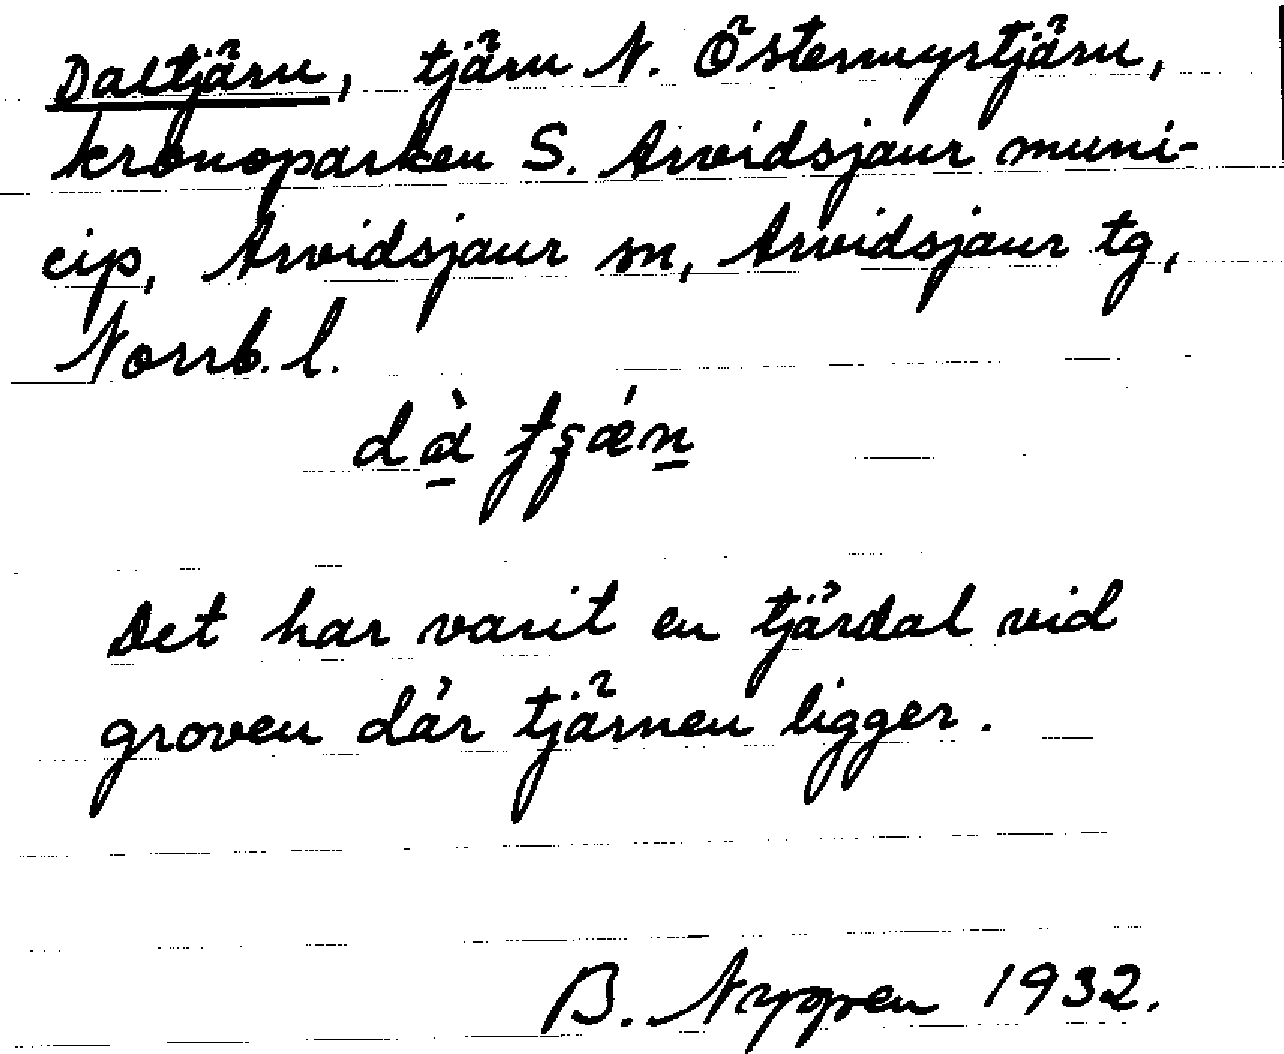 Daltjärn, tjärn N. Östermyrtjärn,
kronoparken S. Arvidsjaur muni-
cip, Arvidsjaur sn, Arvidsjaur tg,
Norrb. l.
Det har varit en tjärdal vid
groven där tjärnen ligger.
B. Nygren 1932.